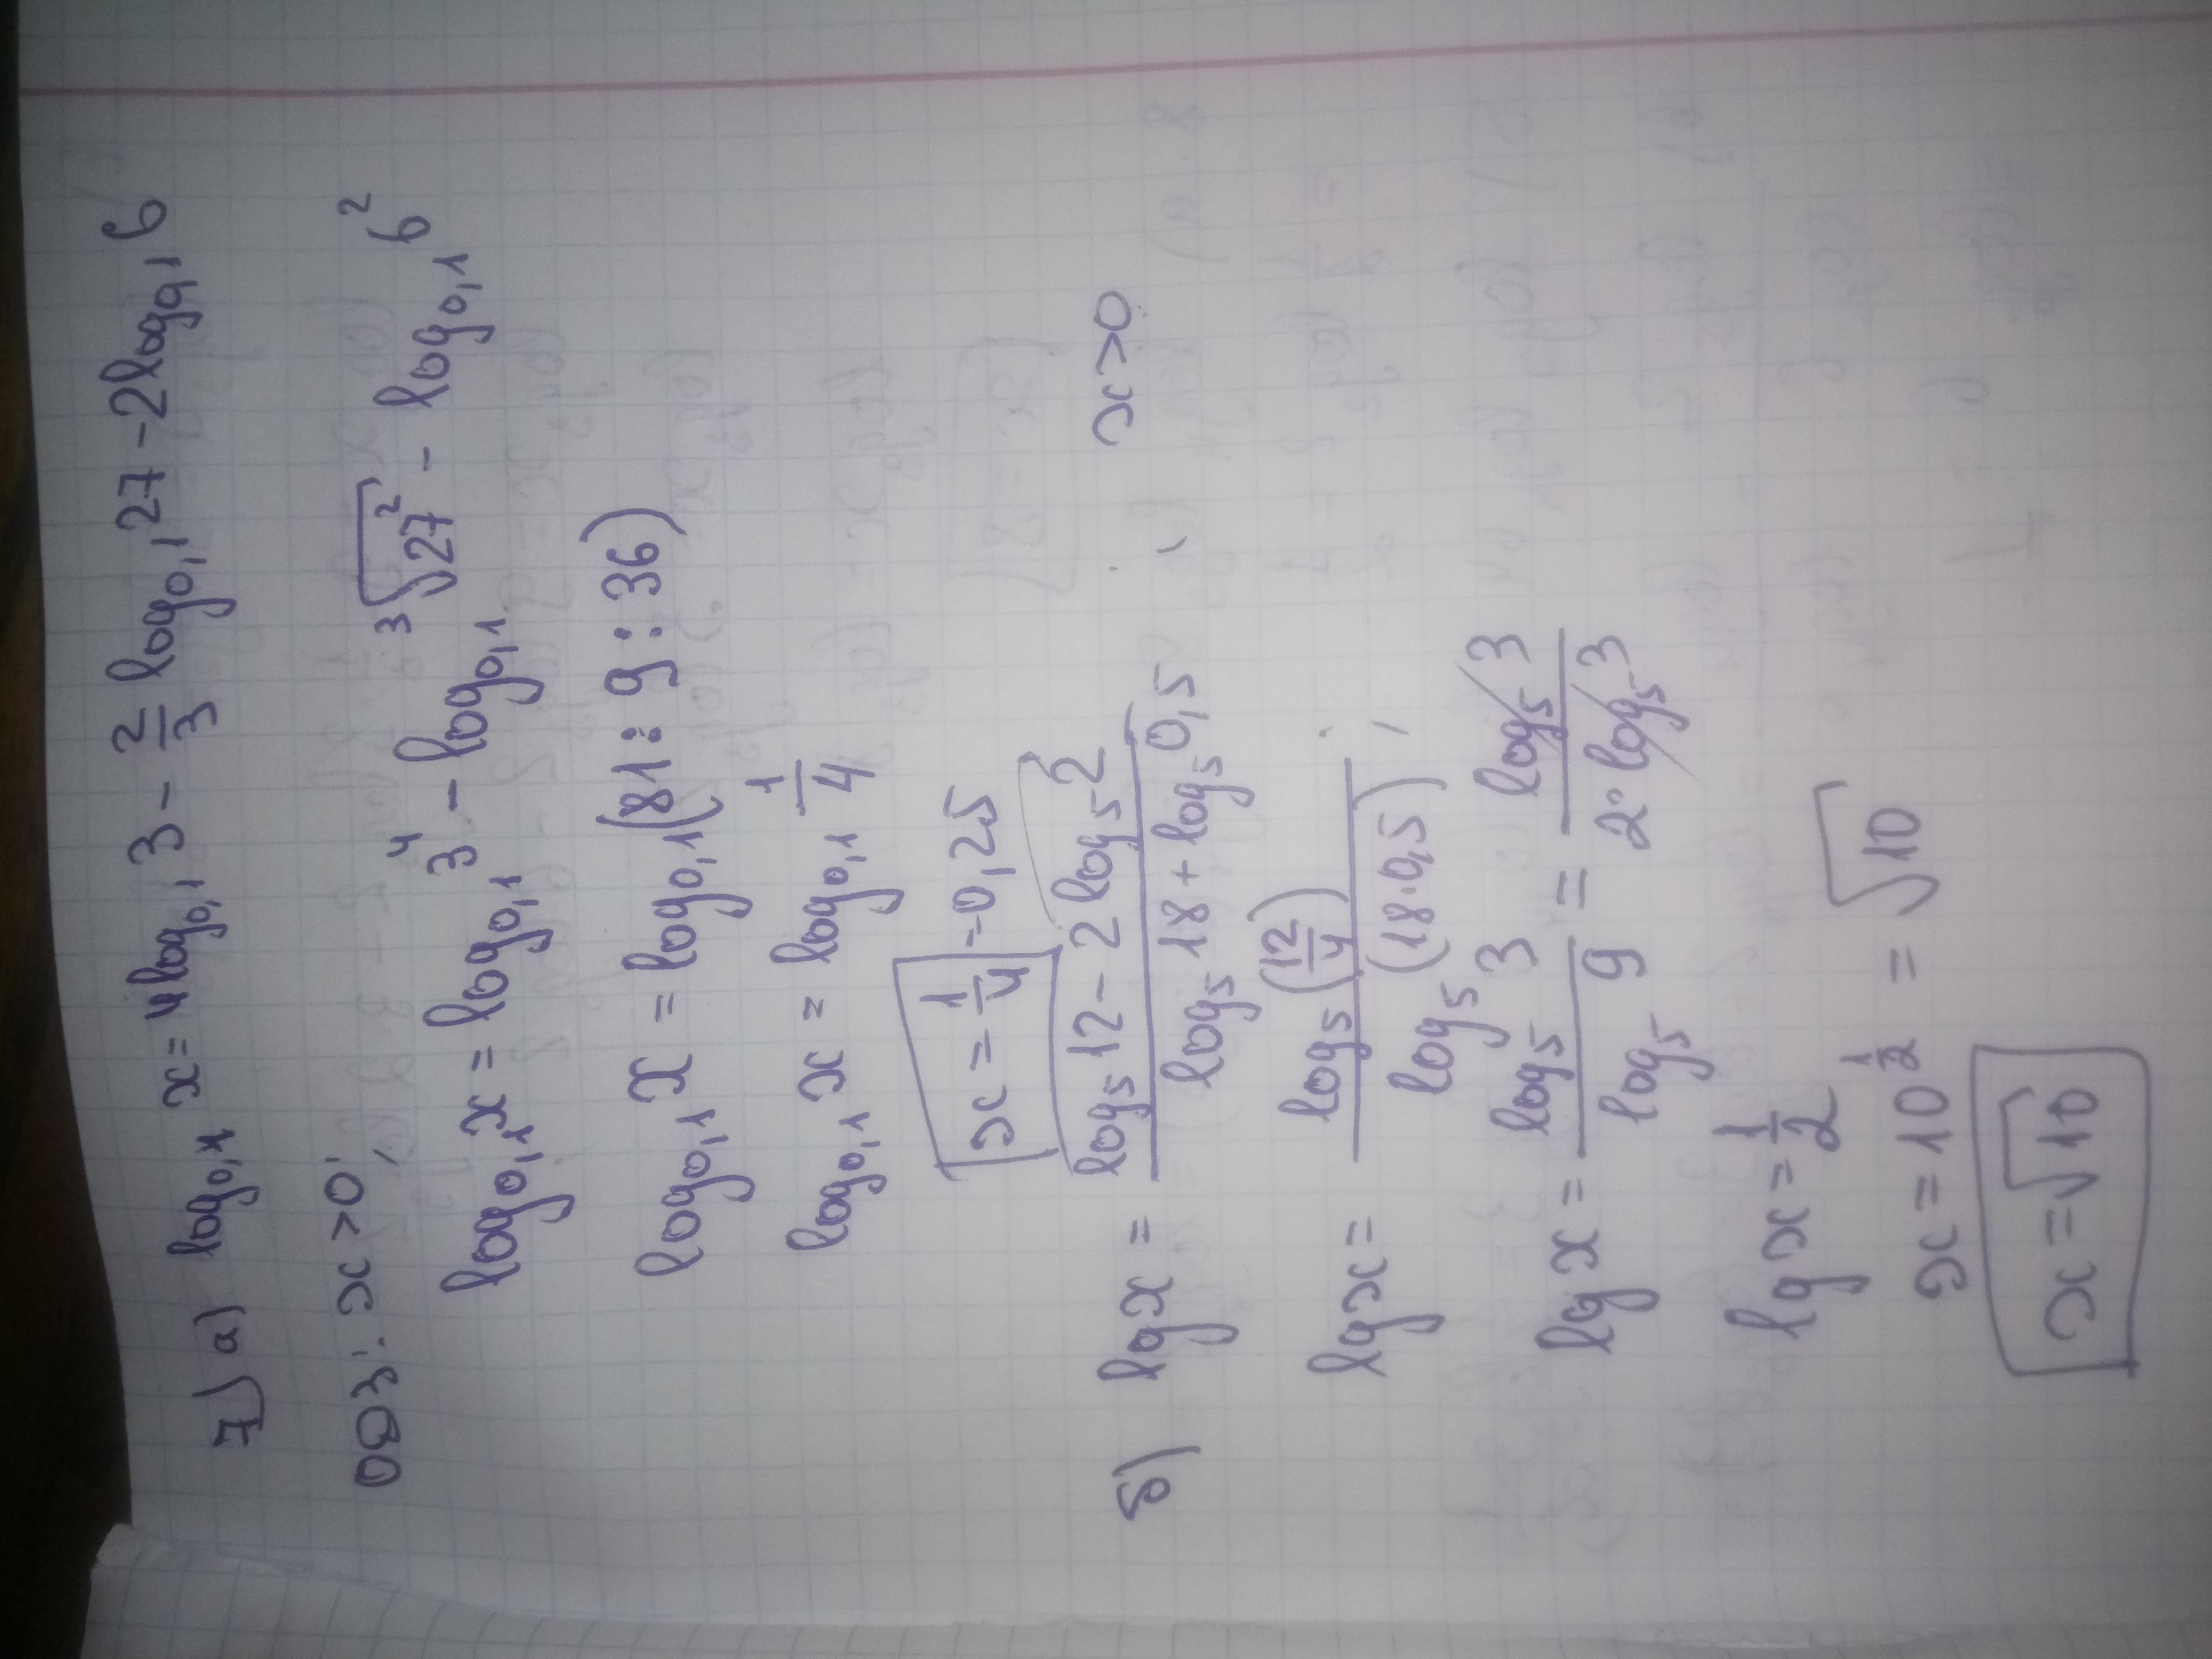 7) а) log₀,₁ x = 4log₀,₁ 3 - 2/3 log₀,₁ 27 - 2log₀,₁ 6
ОВЗ: x>0
log₀,₁ x = log₀,₁ 3⁴ - log₀,₁ ³√27² - log₀,₁ 6²
log₀,₁ x = log₀,₁ (81 : 9 : 36)
log₀,₁ x = log₀,₁ 1/4
x = 1/4 = 0,25
б) lg x = (log₅ 12 - 2 log₅ 2)/(log₅ 18 + log₅ 0,5) x>0
lg x = log₅ (12/4)/log₅ (18·0,5)
lg x = log₅ 3/log₅ 9 = log₅ 3/2·log₅ 3
lg x = 1/2
x = 10^(1/2) = √10
x = √10